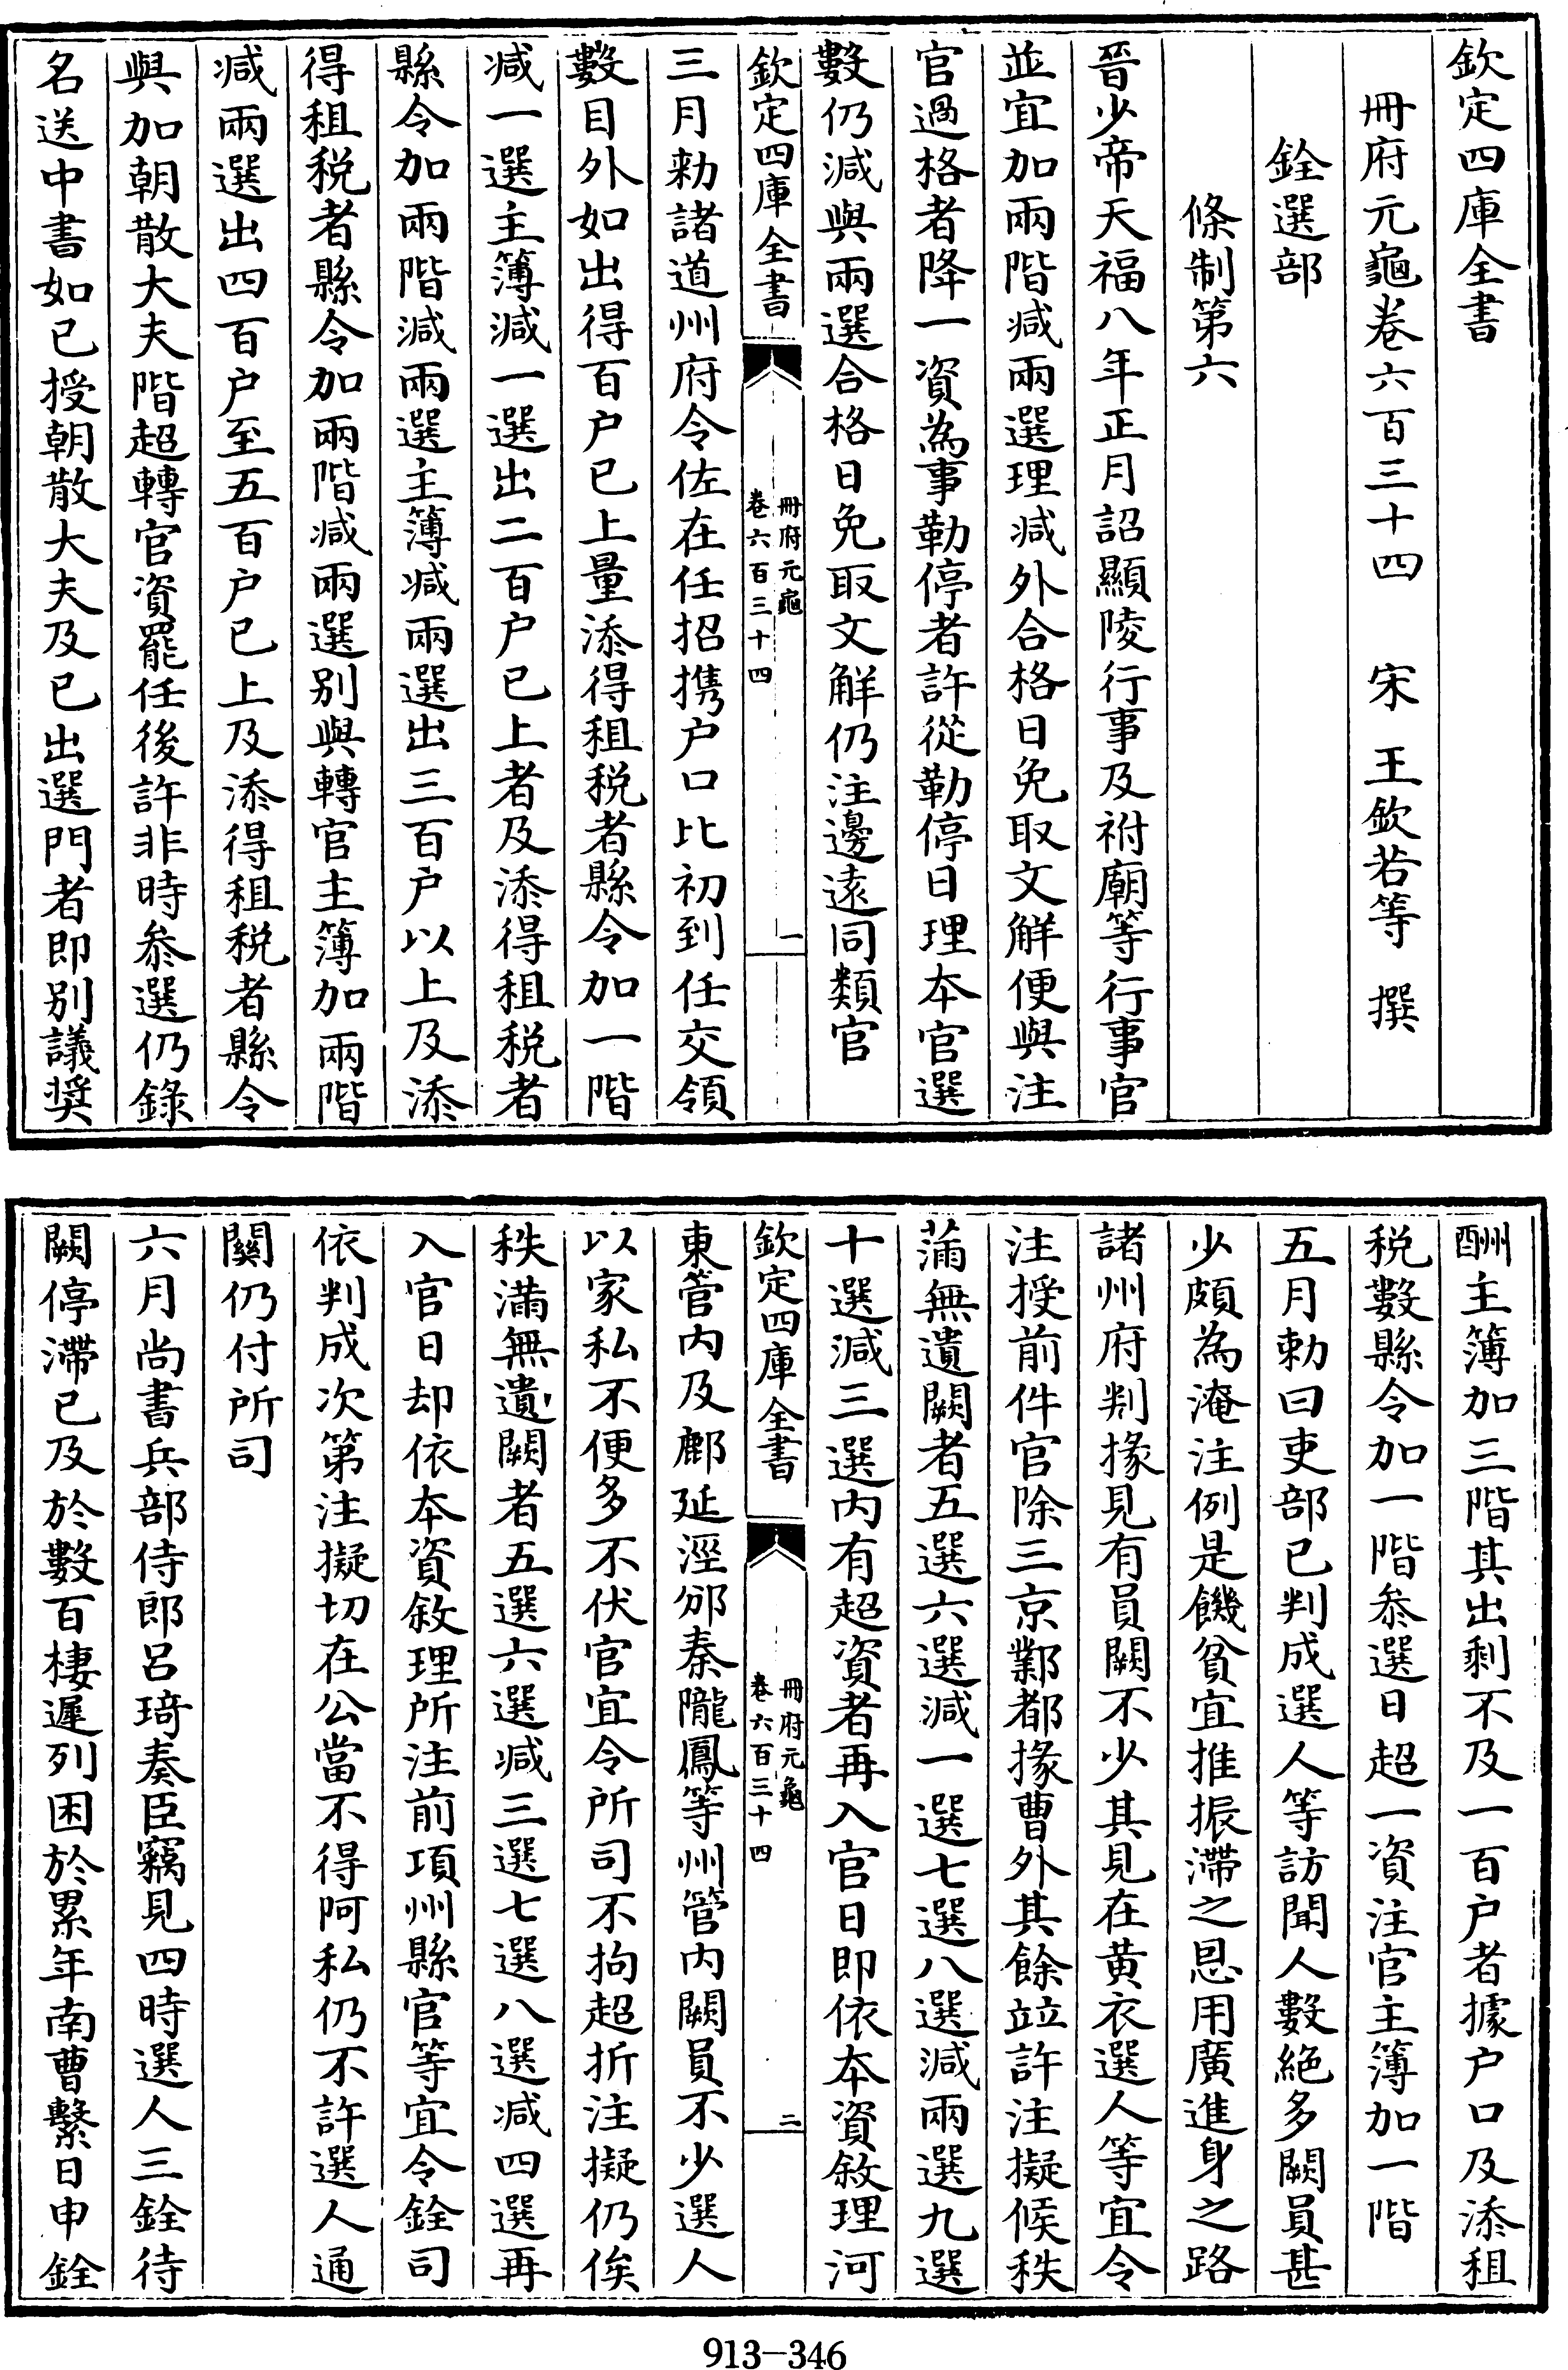 欽定四庫全書
冊府元龜卷六百三十四　宋　王欽若等　撰
銓選部
條制第六
晉少帝天福八年正月詔顯陵行事及祔廟等行事官
並宜加兩階減兩選理減外合格日免取文解便與注
官過格者降一資為事勒停者許從勒停日理本官選
數仍減與兩選合格日免取文解仍注邊遠同類官
欽定四庫全書
冊府元龜
卷六百三十四
一
三月勅諸道州府令佐在任招携户口比初到任交領
數目外如出得百户已上量添得租税者縣令加一階
減一選主簿減一選出二百户已上者及添得租税者
縣令加兩階減兩選主簿減兩選出三百户以上及添
得租税者縣令加兩階減兩選别與轉官主簿加兩階
減兩選出四百户至五百户已上及添得租税者縣令
與加朝散大夫階超轉官資罷任後許非時叅選仍錄
名送中書如已授朝散大夫及已出選門者即别議奬
酬主簿加三階其出剩不及一百户者據户口及添租
税數縣令加一階叅選日超一資注官主簿加一階
五月勅曰吏部已判成選人等訪聞人數絶多闕員甚
少頗為淹注例是饑貧宜推振滯之恩用廣進身之路
諸州府判掾見有員闕不少其見在黄衣選人等宜令
注授前件官除三京鄴都掾曹外其餘竝許注擬候秩
蒲無遺闕者五選六選減一選七選八選減兩選九選
十選減三選内有超資者再入官日即依本資敘理河
欽定四庫全書
冊府元龜
卷六百三十四
二
東管内及鄜延涇邠秦隴鳳等州管内闕員不少選人
以家私不便多不伏官宜令所司不拘超折注擬仍俟
秩滿無遺闕者五選六選減三選七選八選減四選再
入官日却依本資敘理所注前項州縣官等宜令銓司
依判成次第注擬切在公當不得阿私仍不許選人通
闗仍付所司
六月尚書兵部侍郎呂琦奏臣竊見四時選人三銓待
闕停滯已及於數百棲遲列困於累年南曹繫日申銓
913-346